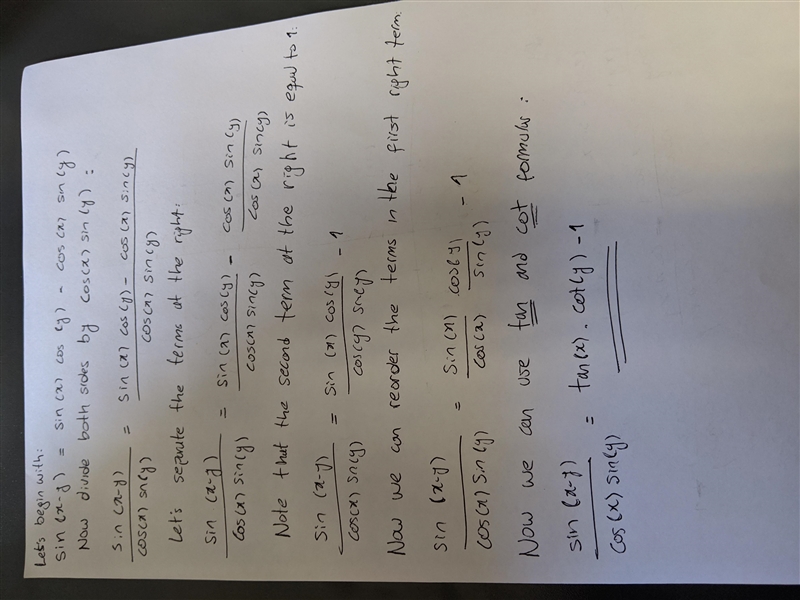 Let's begin with:
sin(x-y) = sin(x) cos(y) - cos(x) sin(y)
Now divide both sides by cos(x) sin(y):
sin(x-y) / cos(x) sin(y) = sin(x) cos(y) - cos(x) sin(y) / cos(x) sin(y)
Let's separate the terms at the right:
sin(x-y) / cos(x) sin(y) = sin(x) cos(y) / cos(x) sin(y) - cos(x) sin(y) / cos(x) sin(y)
Note that the second term at the right is equal to 1:
sin(x-y) / cos(x) sin(y) = sin(x) cos(y) / cos(y) sin(y) - 1
Now we can reorder the terms in the first right term:
sin(x-y) / cos(x) sin(y) = sin(x) / cos(x) cos(y) / sin(y) - 1
Now we can use tan and cot formulas:
sin(x-y) / cos(x) sin(y) = tan(x) . cot(y) - 1